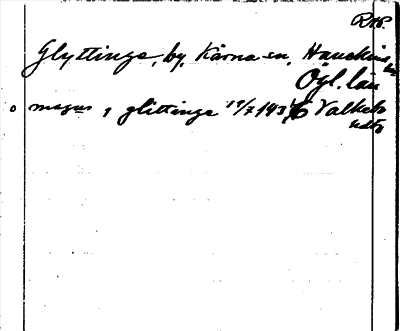 RAP.
Glyttinge, by, Kärna sn, Hanekinds
hd
Ögl. län
o magnus i glittinge 19/7 1436 Valkebo
hdtg